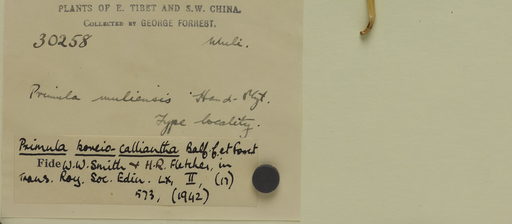 PLANTS OF E. TIBET AND S.W. CHINA.
COLLECTED BY GEORGE FORREST.
30258 Muli.
Primula muliensis Hand-Mzt.
Type locality.
Primula boreio-calliantha Balf. f. et Forrest
Fide W.W. Smith & H.R. Fletcher, in
Trans. Roy. Soc. Edin. LX, II, (17)
573, (1942)